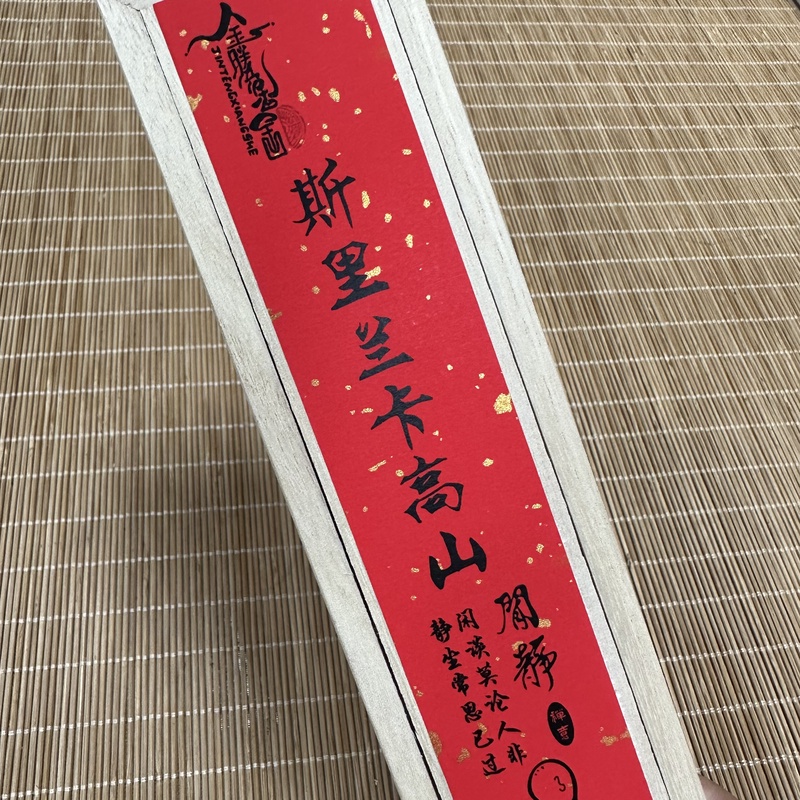 金腾香舍
JINTENGXIANGSHE
斯里兰卡高山
閒靜
闲谈莫论人非
静坐常思己过
3